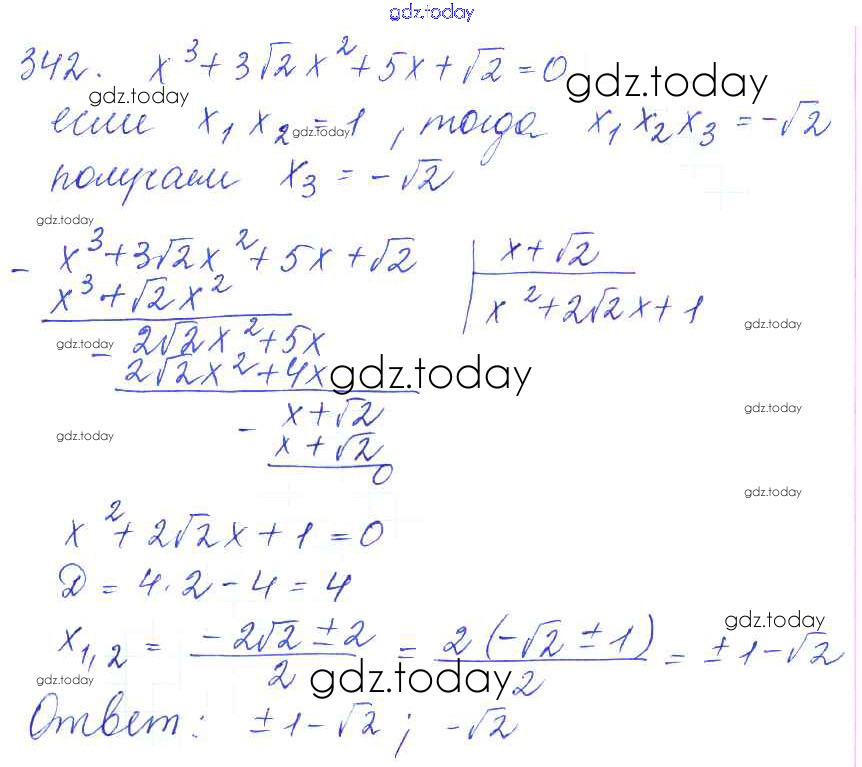 gdz.today
342. x³ + 3√2 x² + 5x + √2 = 0
gdz.today gdz.today
если x₁ x₂ = 1 , тогда x₁ x₂ x₃ = -√2
gdz.today
получаем x₃ = -√2
gdz.today
- x³ + 3√2 x² + 5x + √2 | x + √2
x³ + √2 x² | x² + 2√2 x + 1
gdz.today
- 2√2 x² + 5x
gdz.today
2√2 x² + 4x
gdz.today
gdz.today
- x + √2
gdz.today
x + √2
0
gdz.today
x² + 2√2 x + 1 = 0
D = 4 · 2 - 4 = 4
gdz.today
x₁,₂ = (-2√2 ± 2)/2 = 2(-√2 ± 1)/2 = ±1 - √2
gdz.today gdz.today
Ответ: ±1 - √2 ; -√2